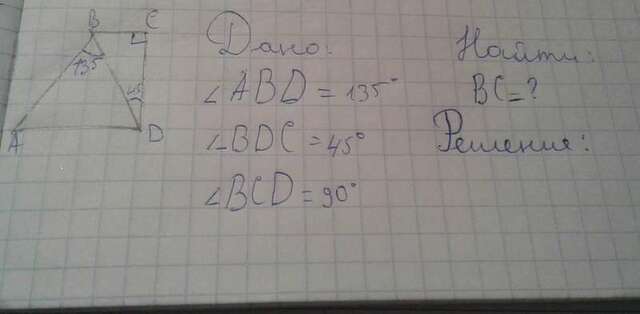 B C
135
45
A D
Дано:
∠ABD = 135°
∠BDC = 45°
∠BCD = 90°
Найти:
BC = ?
Решение: